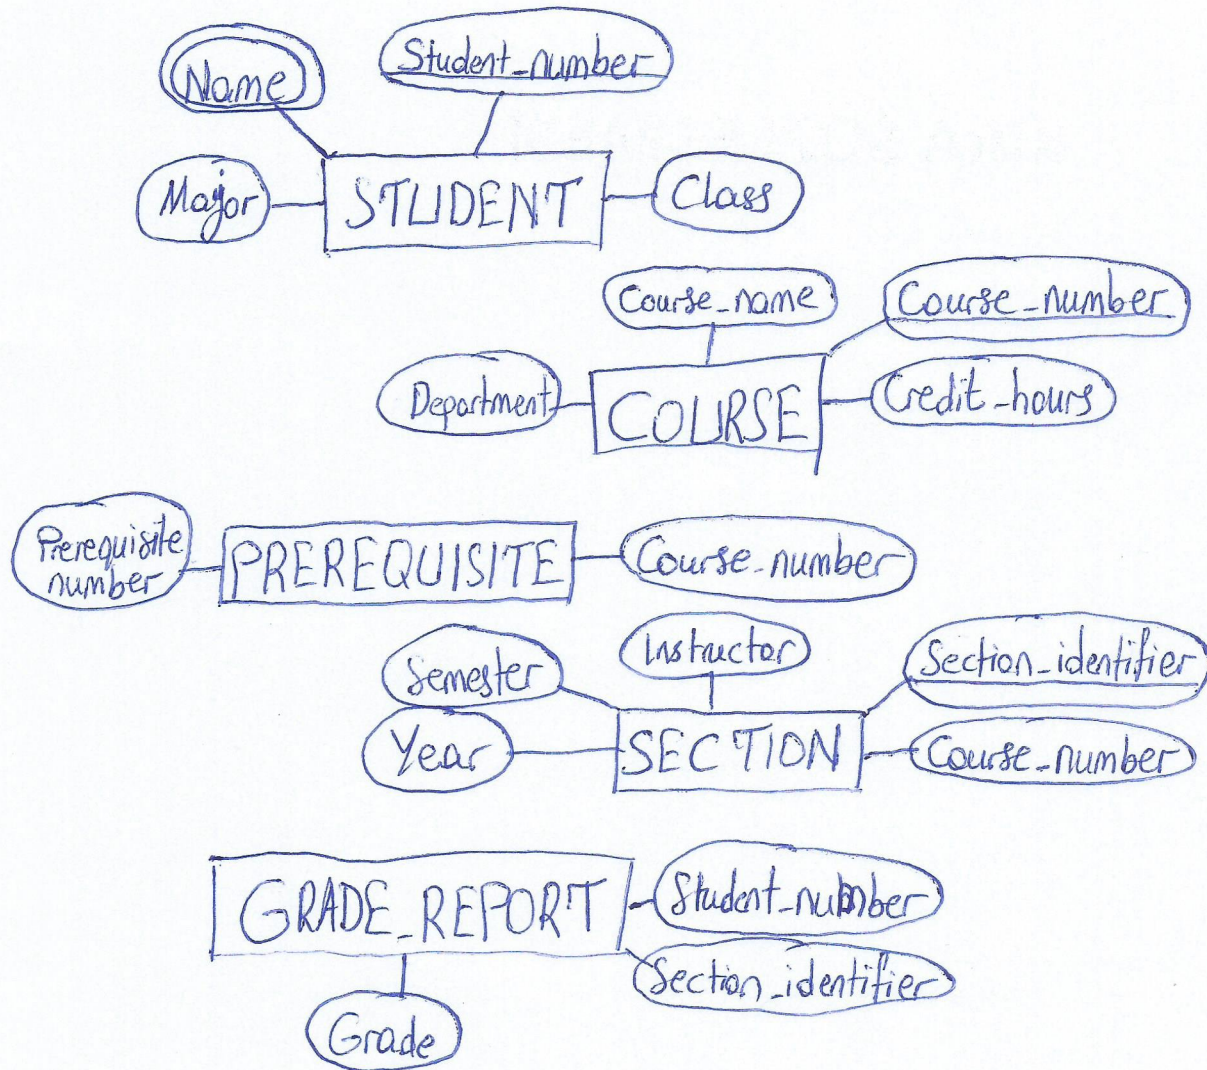 Name
Student_number
Major
STUDENT
Class
Course_name
Course_number
Department
COURSE
Credit_hours
Prerequisite
number
PREREQUISITE
Course_number
Semester
Instructor
Section_identifier
Year
SECTION
Course_number
GRADE_REPORT
Student_number
Section_identifier
Grade